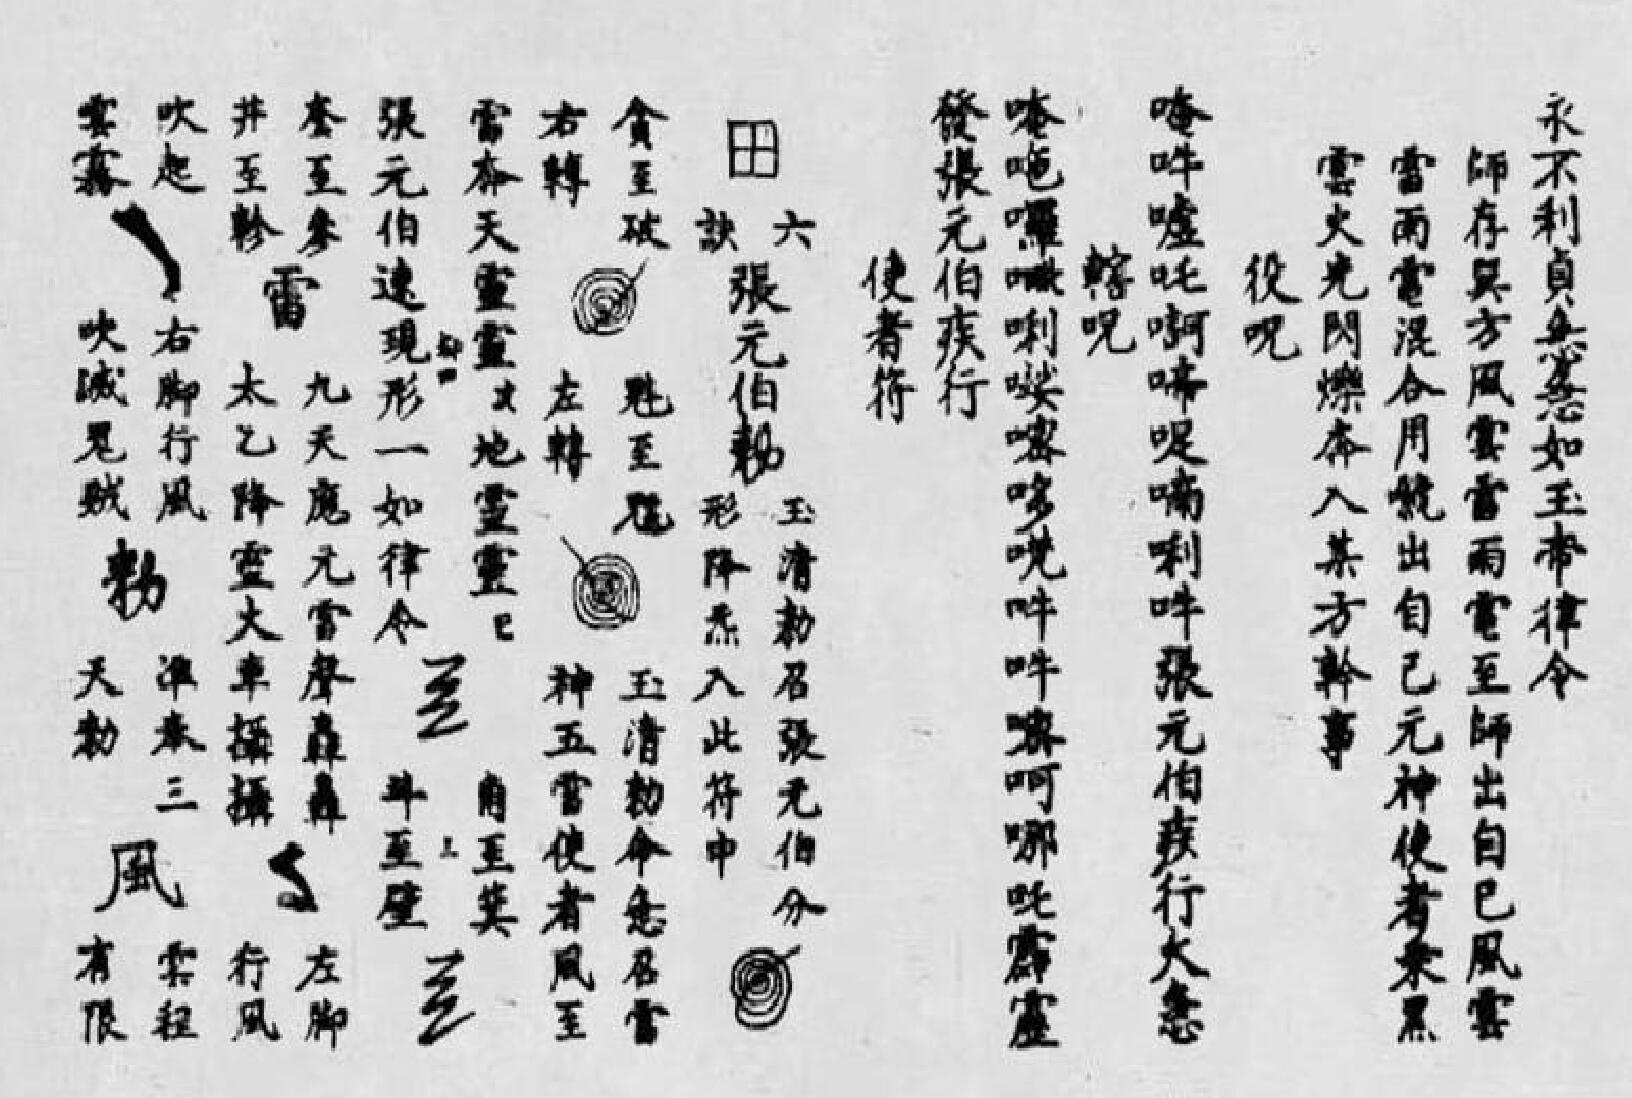 永不利貞急急如玉帝律令
師存巽方風雲雷雨電至師出自已風雲
雷雨電混合用號出自己元神使者乘黑
雲火光閃爍奔入某方幹事
役呪
唵吽嘘吒啊啼呢喃唎吽張元伯疾行大急
轄呪
唎吽吽呵哪吒霹靂
發張元伯疾行
使者符
田
六
訣
張元伯勅
玉清勅召張元伯分
形降炁入此符中
貪至破
右轉
魁至魒
左轉
玉清勅命急召雷
神五雷使者風至
雷奔天靈靈
地靈靈
張元伯速現形一如律令
角至箕
斗至壁
奎至參
井至軫
雷
九天魔元雷聲轟轟
太乙降靈火車攝攝
左脚
行風
吹起
雲霧
右脚行風
吹滅鬼賊
勅
準奉三
天勅
風
雲程
有限